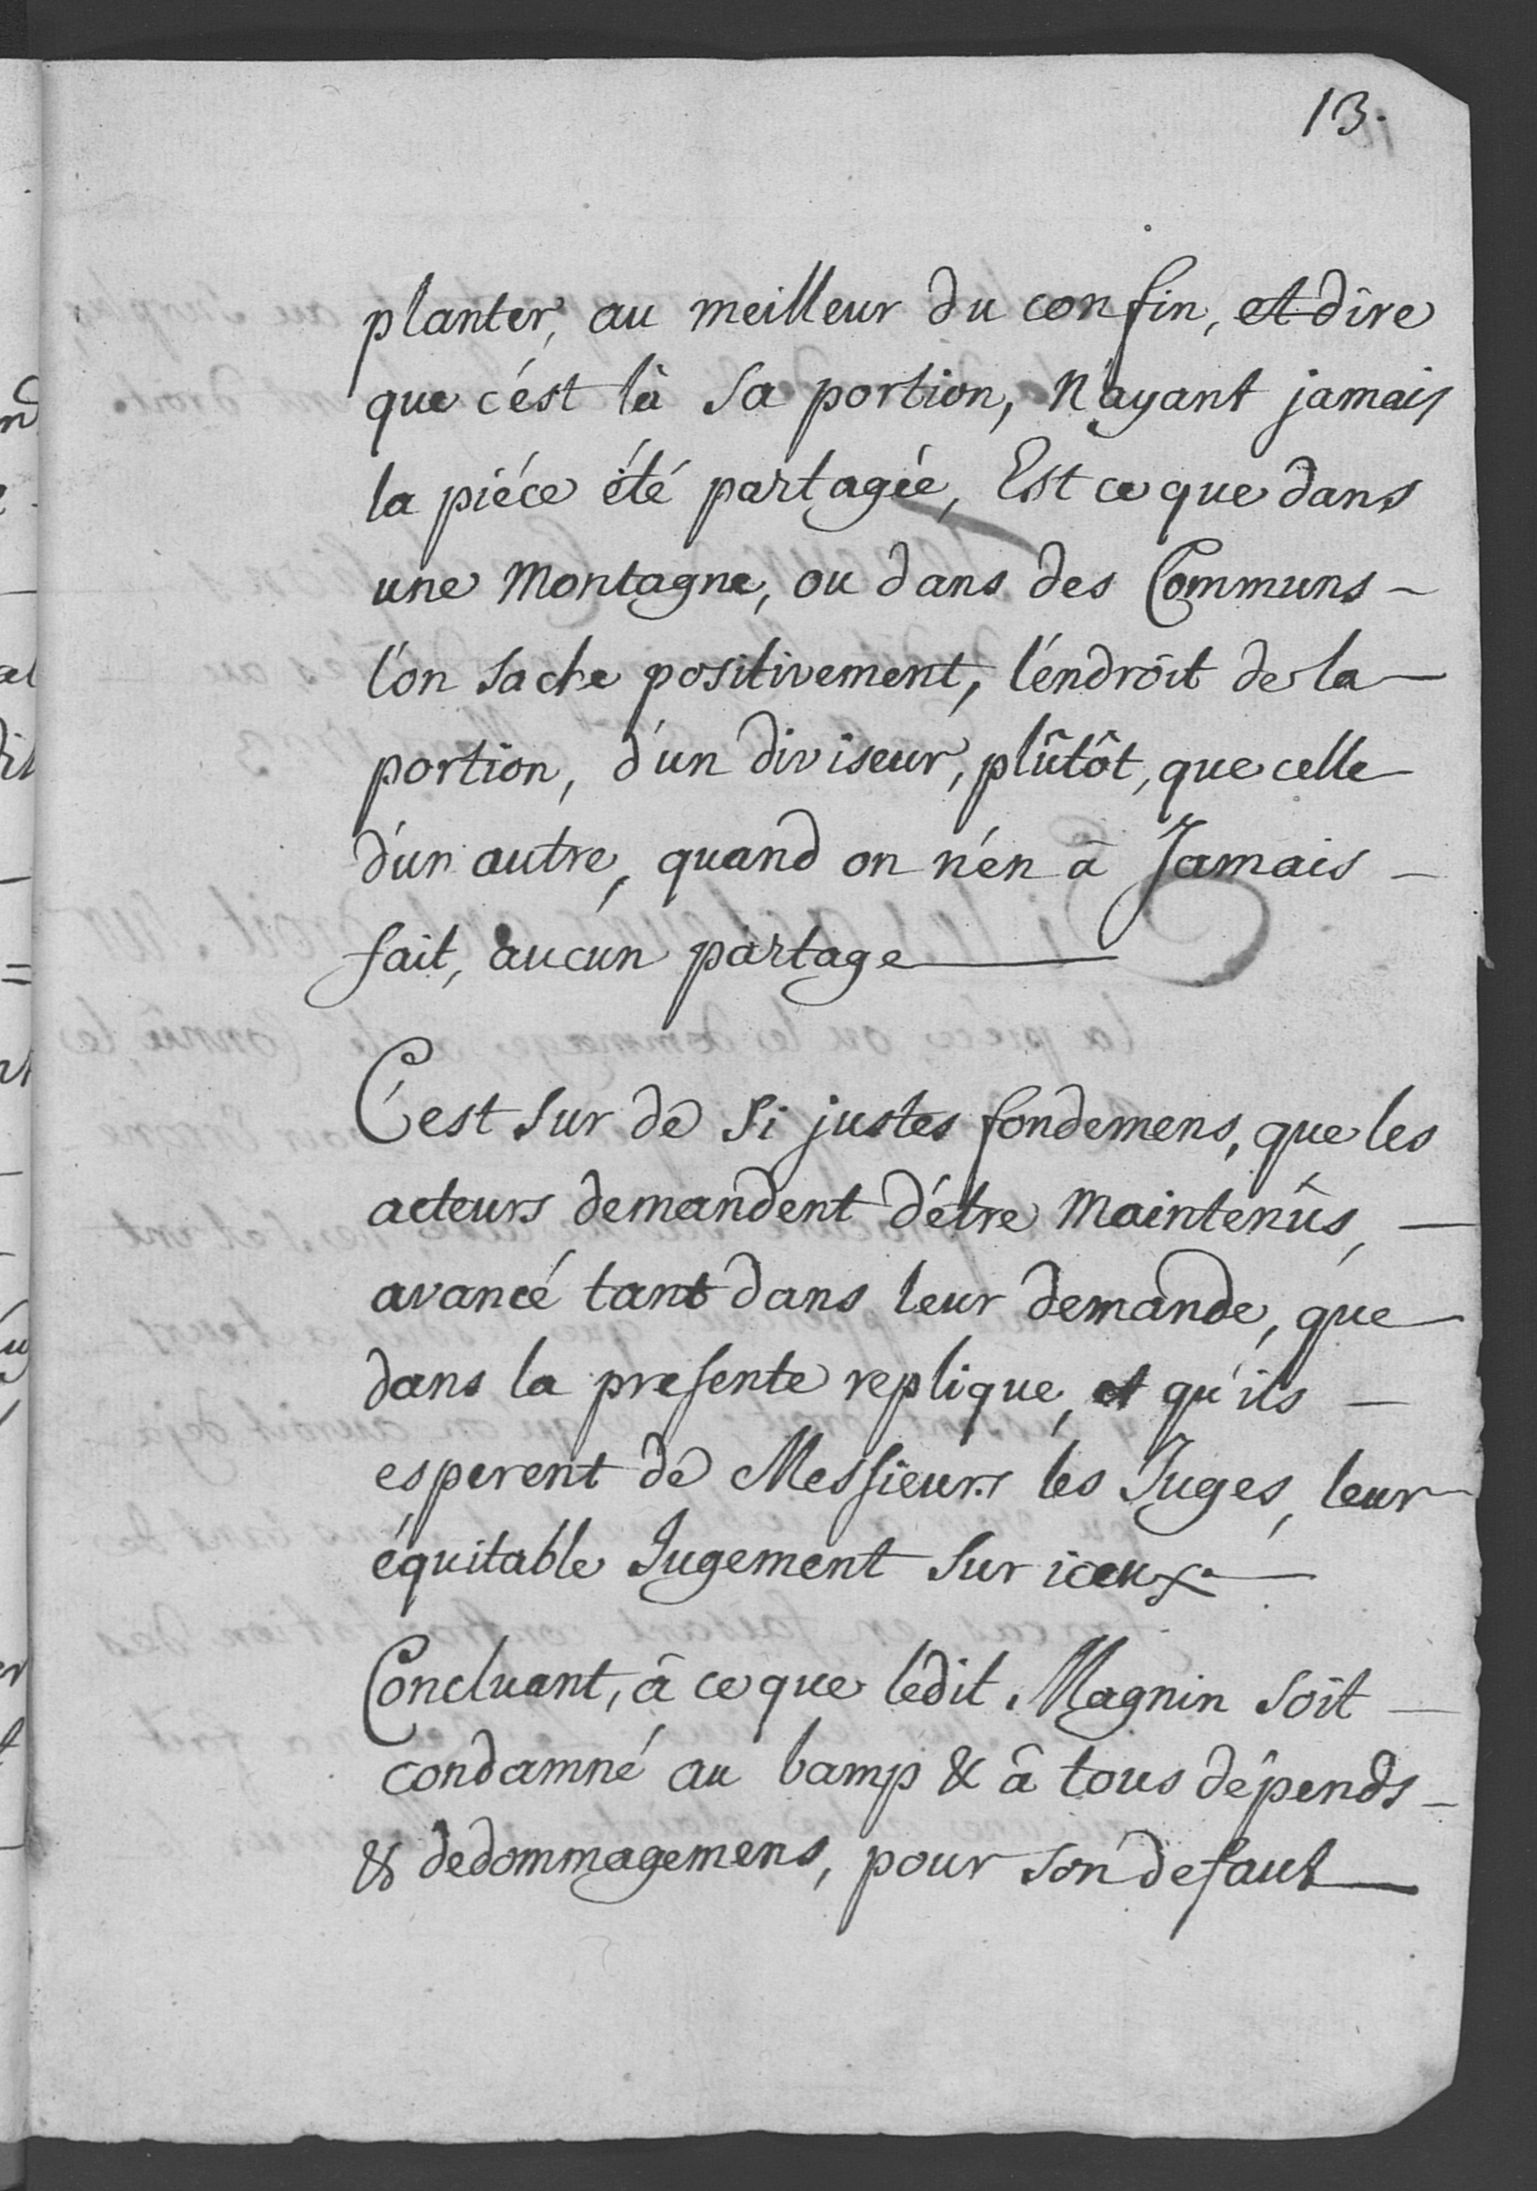 13.
planter, au meilleur du confin, et dire
que c'est là sa portion, N'ayant jamais
la piéce été partagée, Est ce que dans
une Montagne, ou dans des Communs -
l'on sache positivement, l'éndroit de la -
portion, d'un diviseur, plûtôt, que celle
d'un autre, quand on n'én à Jamais -
fait, aucun partage
C'est sur de si justes fondemens, que les
acteurs demandent d'étre Maintenûs, -
avancé tant dans leur demande, que
dans la presente replique, et qu'ils -
esperent de Messieurs les Juges, leur
équitable Jugement sur iceux. -
Concluant, à ce que ledit Magnin soit -
condamné au bamp & â tous dêpends -
& dedommagemens, pour son defaut